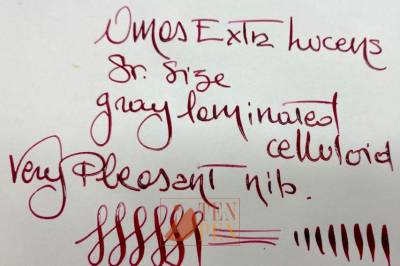 Omas Extra Lucens
Sr. Size
gray laminated
celluloid
Very Pleasant nib.
TEN
PEN